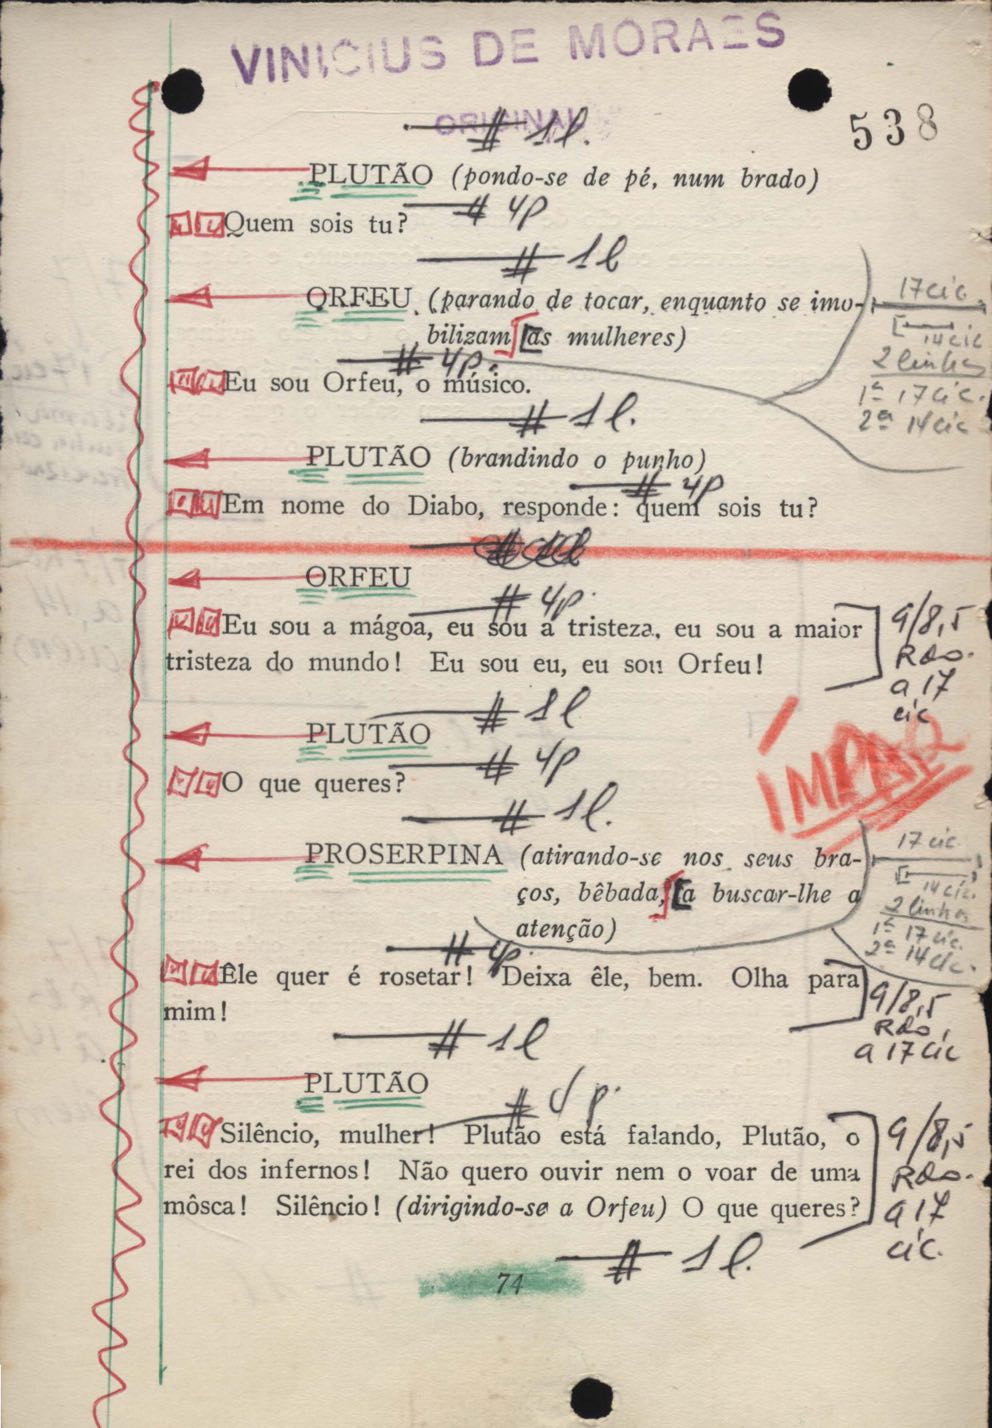 VINICIUS DE MORAES
ORIGINAL
538
# 1l.
PLUTÃO (pondo-se de pé, num brado)
# 4p
Quem sois tu?
# 1l
ORFEU (parando de tocar, enquanto se imo-
17 cíc.
bilizam as mulheres)
14 cíc
2 linhas
1ª 17 cíc.
2ª 14 cíc
# 4p.
Eu sou Orfeu, o músico.
# 1l.
PLUTÃO (brandindo o punho)
# 4p
Em nome do Diabo, responde: quem sois tu?
ORFEU
# 4p.
Eu sou a mágoa, eu sou a tristeza, eu sou a maior
tristeza do mundo! Eu sou eu, eu sou Orfeu!
9/8,5
Rdo.
a 17
cíc
# 1l
PLUTÃO
# 4p
O que queres?
ÍMPAR
# 1l.
PROSERPINA (atirando-se nos seus bra-
17 cíc.
ços, bêbada, a buscar-lhe a
14 cíc.
atenção)
2 linhas
1ª 17 cíc.
2ª 14 cíc.
# 4p
Êle quer é rosetar! Deixa êle, bem. Olha para
mim!
9/8,5
Rdo,
a 17 cíc
# 1l
PLUTÃO
Silêncio, mulher! Plutão está falando, Plutão, o
rei dos infernos! Não quero ouvir nem o voar de uma
môsca! Silêncio! (dirigindo-se a Orfeu) O que queres?
9/8,5
Rdo.
a 17
cíc.
# 1l.
74